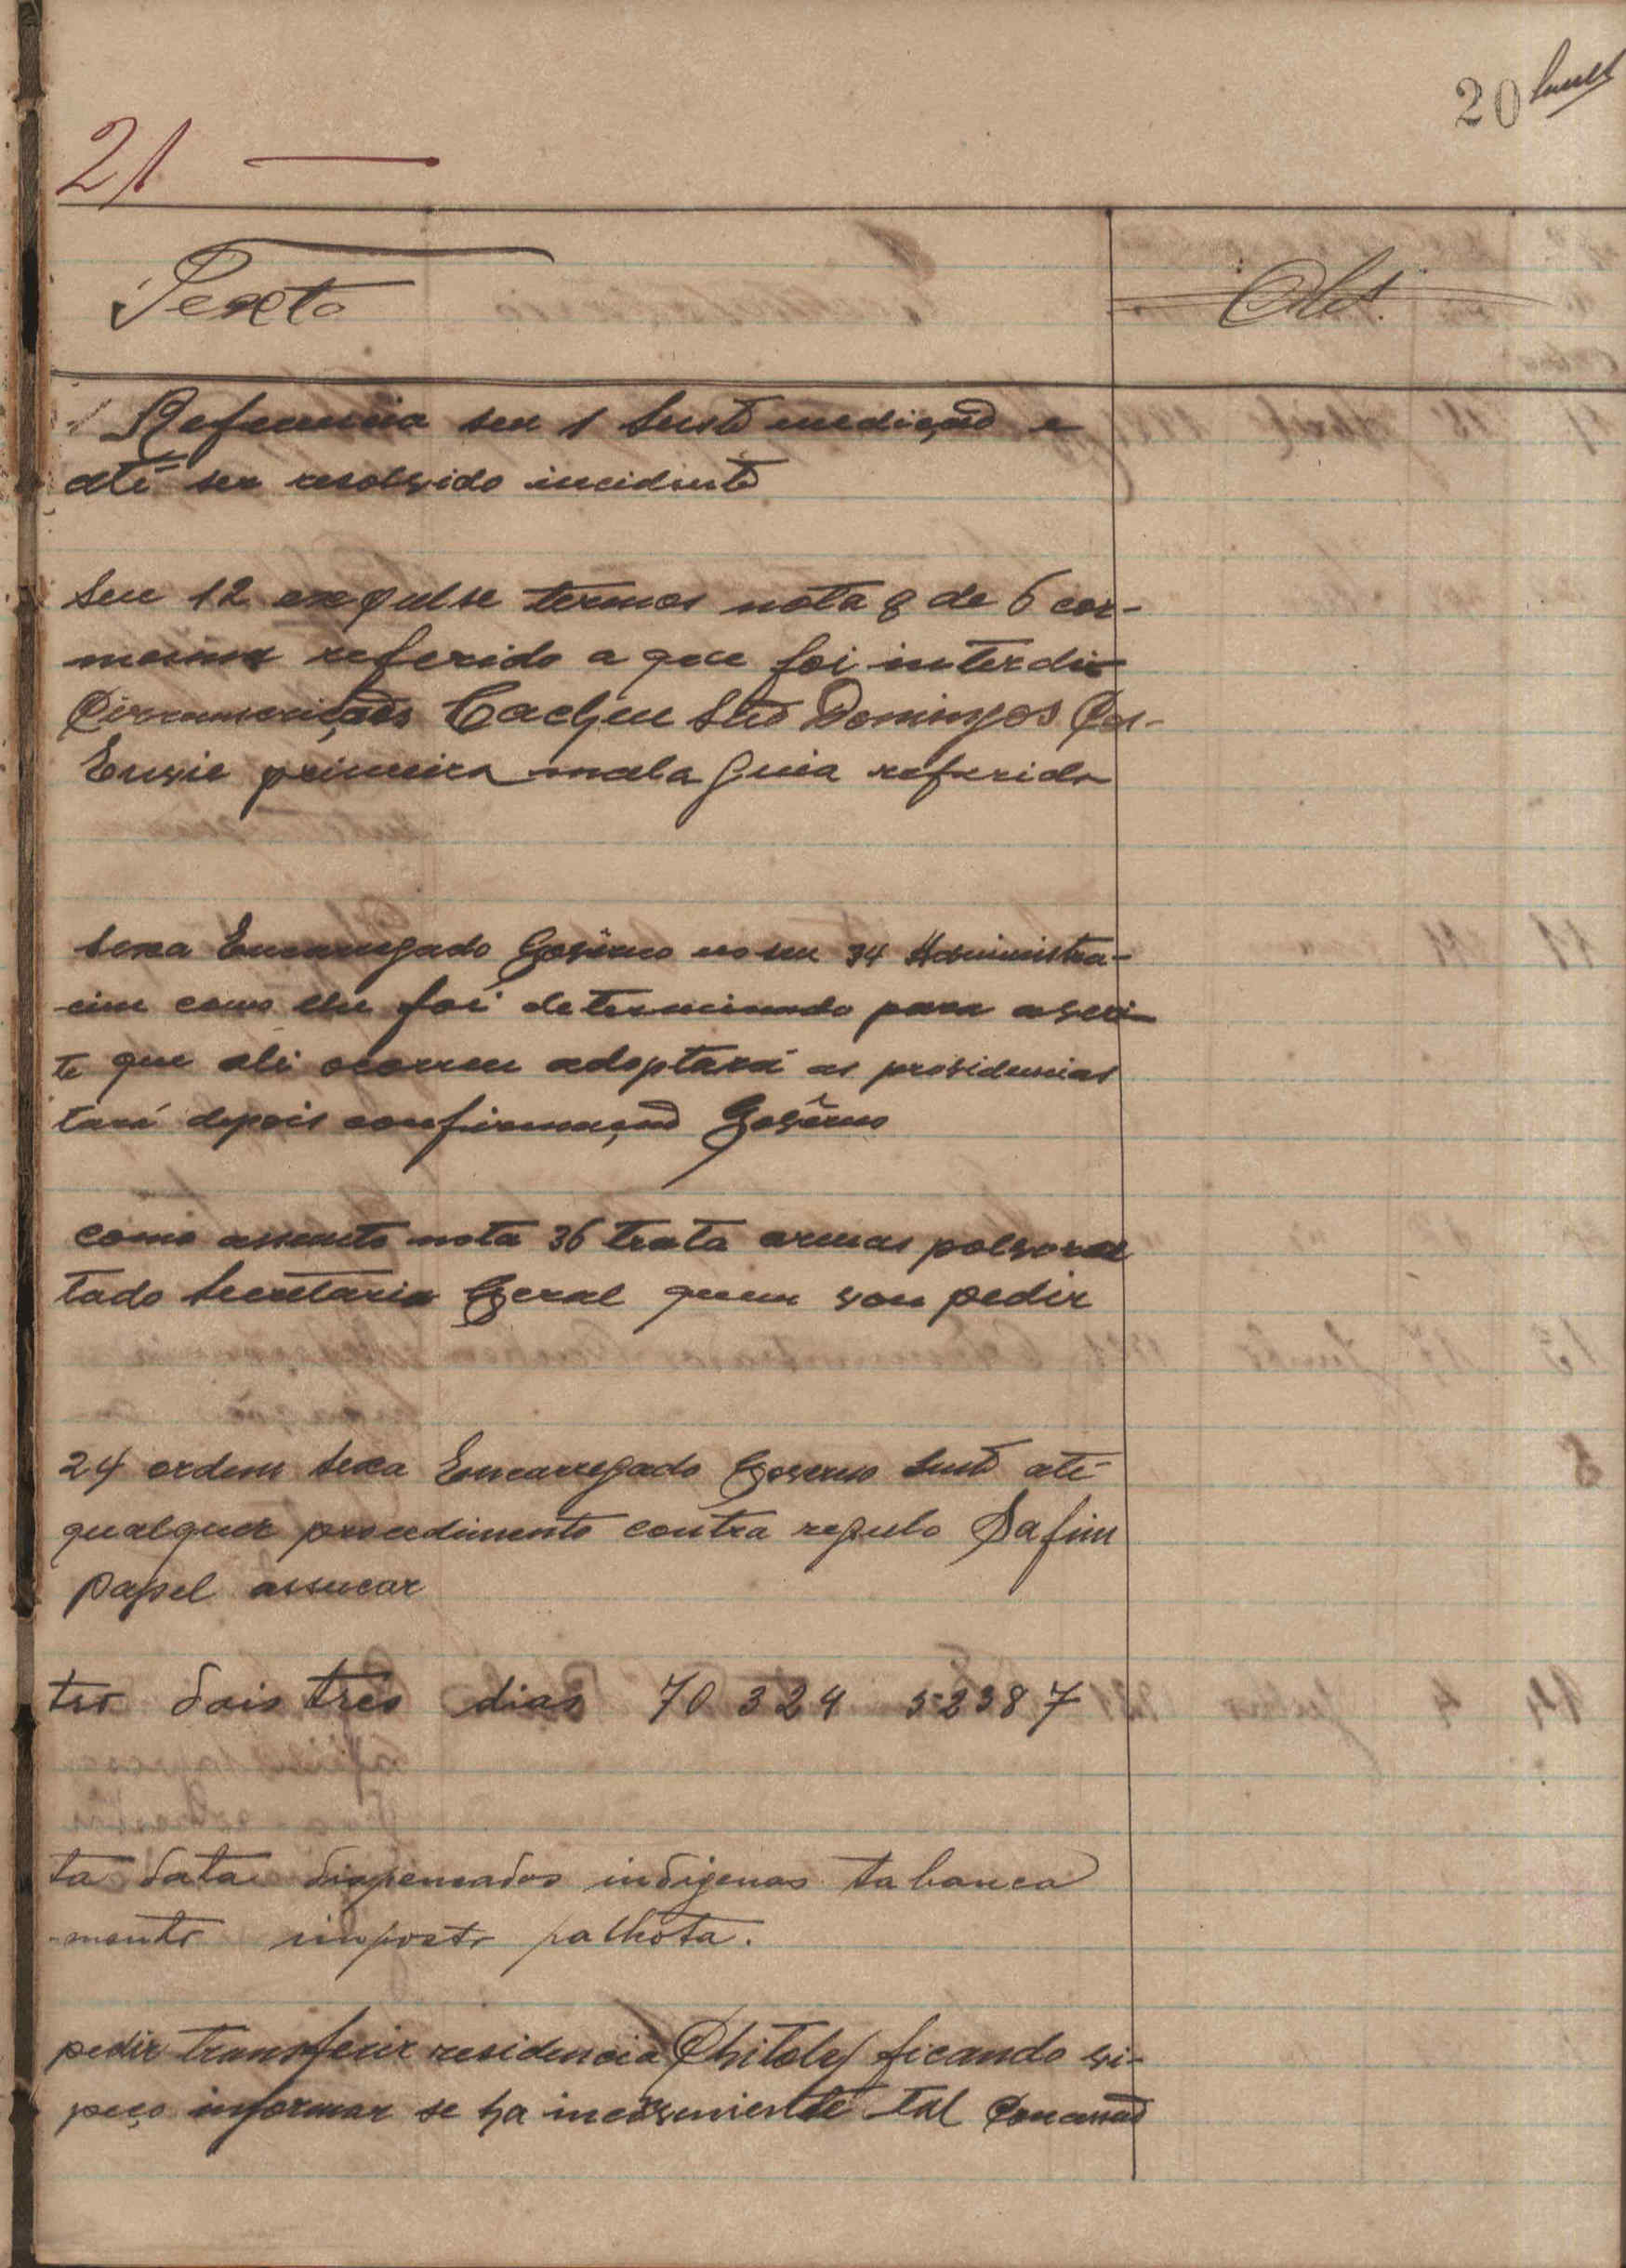 20
21
Texto
Obs.
Referencia seu 1 Susto medição e
até ser resolvido incidente
Seu 12 expulse termos nota 8 de 6 cor-
referido a que foi interdi
Circumscrições Cacheu São Domingos
Envie primeira mala guia referida
Sexa Encarregado Govêrno no seu 34 Administra-
como lhe foi determinado para
te que ali ocorreu adoptará as providencias
tará depois confirmação Govêrno
como assunto nota 36 trata armas polvora
tado Secretaria Geral quem vou pedir
24 ordem Sexa Encarregado Governo até
qualquer procedimento contra regulo Safim
papel assucar
tro dois tres dias 70 324 52387
ta data dispensados indigenas tabanca
-mento imposto palhota.
pedir transferir residencia Chitoly ficando vi-
peço informar se ha inconveniente tal